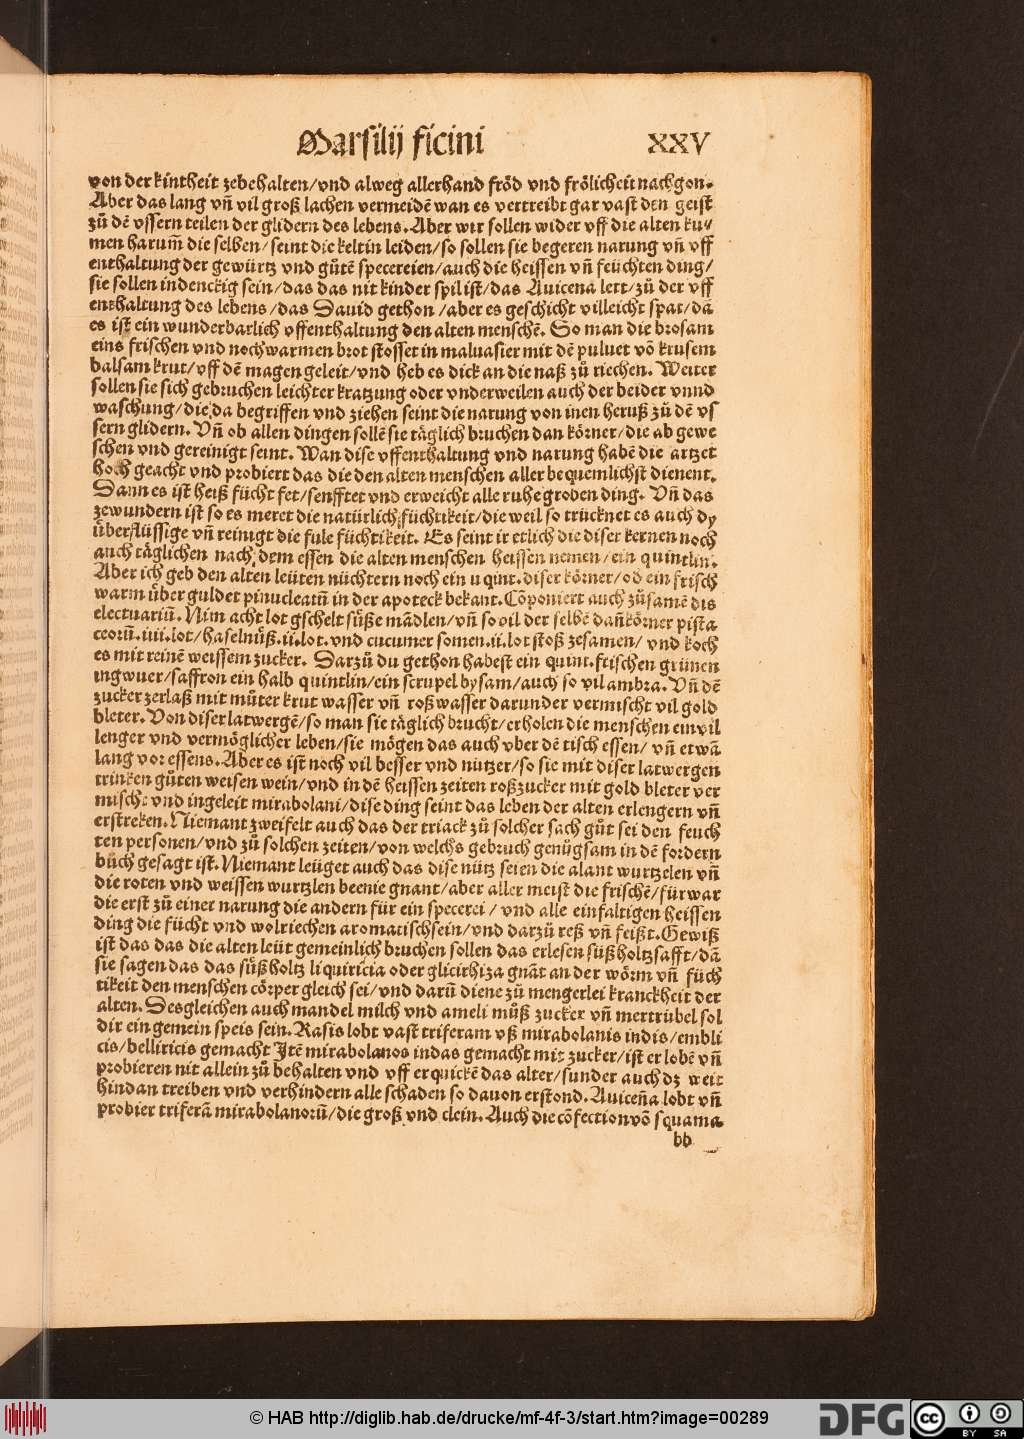 Marsilij ficini XXV
von der kintheit zebehalten/vnd alweg allerhand fröd vnd frölicheit nachgon.
Aber das lang vñ vil groß lachen vermeidē wan es vertreibt gar vast den geist
zů dē vssern teilen der glidern des lebens. Aber wir sollen wider vff die alten ku⸗
men harum̄ die selben/seint die keltin leiden/so sollen sie begeren narung vñ vff
enthaltung der gewürtz vnd gůtē specereien/auch die heissen vñ feüchten ding/
sie sollen indenckig sein/das das nit kinder spil ist/das Auicena lert/zů der vff
enthaltung des lebens/das Dauid gethon/aber es geschicht villeicht spat/dā
es ist ein wunderbarlich vffenthaltung den alten menschē. So man die brosam
eins frischen vnd noch warmen brot stosset in maluasier mit dē puluer vō krusem
balsam krut/vff dē magen geleit/vnd heb es dick an die naß zů riechen. Weiter
sollen sie sich gebruchen leichter kratzung oder vnderweilen auch der beider vnnd
waschung/die da begriffen vnd ziehen seint die narung von inen heruß zů dē vs
sern glidern. Vñ ob allen dingen sollē sie täglich bruchen dan körner/die ab gewe
schen vnd gereinigt seint. Wan dise vffenthaltung vnd narung habē die artzet
hoch geacht vnd probiert das die den alten menschen aller bequemlichst dienent.
Dann es ist heiß fücht fet/senfftet vnd erweicht alle ruhe groben ding. Vñ das
zewundern ist so es meret die natürlich füchtikeit/die weil so trücknet es auch dy
überflüssige vñ reinigt die fule füchtikeit. Es seint ir etlich die diser kernen noch
auch täglichen nach dem essen die alten menschen heissen nemen/ein quintlin.
Aber ich geb den alten leüten nüchtern noch ein u qint. diser körner/od ein frisch
warm über guldet pinucleatū in der apoteck bekant. Cōponiert auch zůsamē dis
electuariū. Nim acht lot gschelt süße mādlen/vñ so vil der selbē dañkörner pista
ceorū.iiii.lot/haselnüß.ii.lot.vnd cucumer somen.ii.lot stoß zesamen/vnd koch
es mit reinē weissem zucker. Darzů du gethon habest ein quint.frischen grünen
ingwer/saffron ein halb quintlin/ein scrupel bysam/auch so vil ambra. Vñ dē
zucker zerlaß mit můter krut wasser vñ roßwasser darunder vermischt vil gold
bleter. Von diser latwergē/so man sie täglich brucht/erholen die menschen ein vil
lenger vnd vermöglicher leben/sie mögen das auch vber dē tisch essen/ vñ etwā
lang vor essens. Aber es ist noch vil besser vnd nützer/so sie mit diser latwergen
trincken gůten weisen wein/vnd in dē heissen zeiten roßzucker mit gold bleter ver
mischt vnd ingeleit mirabolani/dise ding seint das leben der alten erlengern vñ
erstreken. Niemant zweifelt auch das der triack zů solcher sach gůt sei den feuch
ten personen/vnd zů solchen zeiten/von welchs gebruch genůgsam in dē fordern
bůch gesagt ist. Niemant leüget auch das dise nütz seien die alant wurtzelen vñ
die roten vnd weissen wurtzlen beenie gnant/aber aller meist die frischē/fürwar
die erst zů einer narung die andern für ein specerei/ vnd alle einfaltigen heissen
ding die fücht vnd wolriechen aromatisch sein/vnd darzů reß vñ feißt. Gewiß
ist das das die alten leüt gemeinlich bruchen sollen das erlesen süßholtzsafft/dā
sie sagen das das süßholtz liquiricia oder glicirhiza gnāt an der wörm vñ füch
tikeit den menschen cörper gleich sei/vnd darū diene zů mengerlei kranckheit der
alten. Desgleichen auch mandel milch vnd ameli můß zucker vñ mertrübel sol
dir ein gemein speis sein. Rasis lobt vast triferam vß mirabolanis indis/embli
cis/belliricis gemacht Itē mirabolanos indas gemacht mit zucker/ist er lobē vñ
probieren nit allein zů behalten vnd vff erquickē das alter/sunder auch dz weit
hindan treiben vnd verhindern alle schaden so dauon erstond. Auiceña lobt vñ
probier triferā mirabolanorū/die groß vnd clein. Auch die cōfection vō squama
bb
© HAB http://diglib.hab.de/drucke/mf-4f-3/start.htm?image=00289 DFG cc BY SA